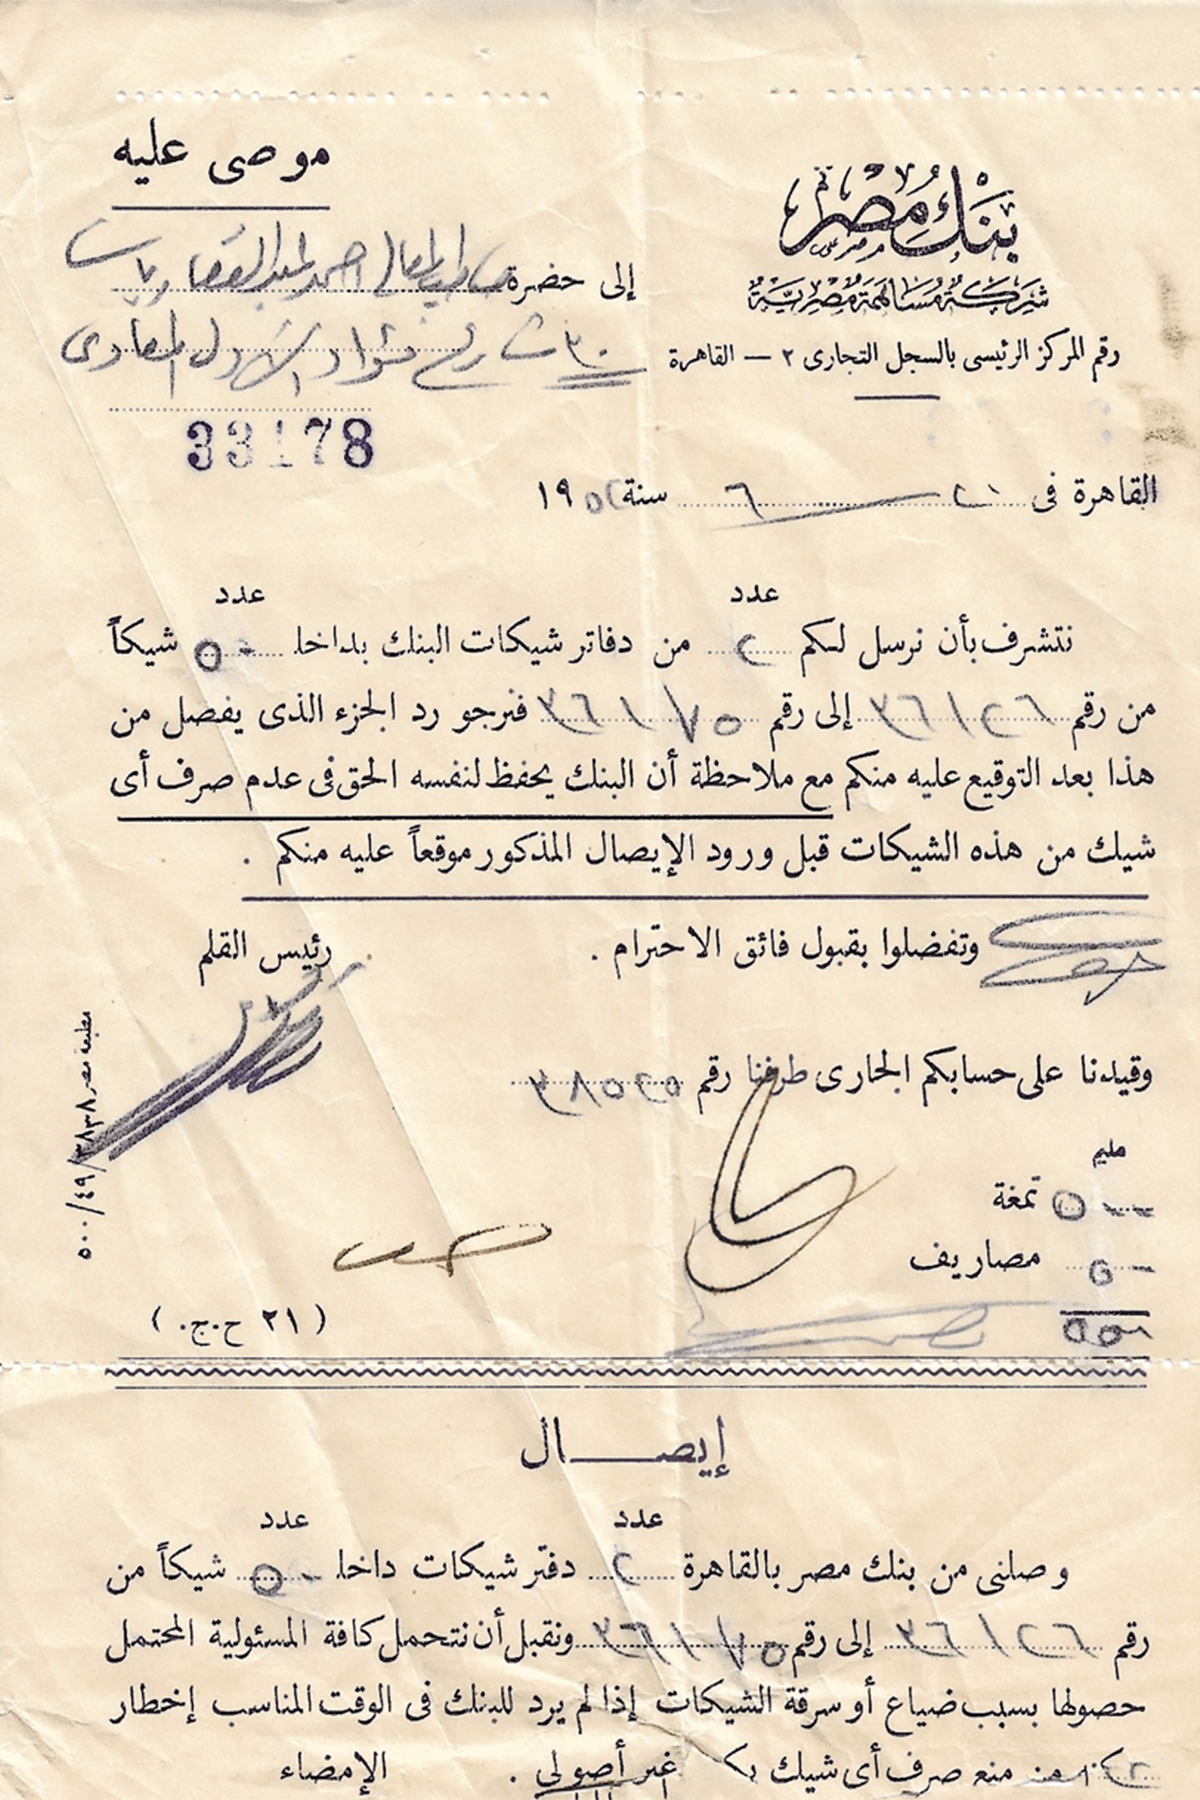 موصى عليه
بنك مصر
شركة مساهمة مصرية
إلى حضرة صاحب المعالي احمد عبد الغفار باشا
رقم المركز الرئيسى بالسجل التجارى ٢ — القاهرة
٣٠ شارع فؤاد الاول المعادى
33178
القاهرة فى ٢١ / ٦ سنة ١٩٥٢
عدد عدد
نتشرف بأن نرسل لكم ٢ من دفاتر شيكات البنك بداخلـ ٥٠ شيكاً
من رقم ٣٦١٢٦ إلى رقم ٣٦١٧٥ فنرجو رد الجزء الذى يفصل من
هذا بعد التوقيع عليه منكم مع ملاحظة أن البنك يحفظ لنفسه الحق فى عدم صرف أى
شيك من هذه الشيكات قبل ورود الإيصال المذكور موقعاً عليه منكم .
وتفضلوا بقبول فائق الاحترام .
رئيس القلم
وقيدنا على حسابكم الجارى طرفنا رقم
مليم
تمغة
مصاريف
مطبعة مصر ٣٨٣٨/٤٩/٥٠٠
( ٢١ ح.ج. )
إيصـــــال
عدد عدد
وصلنى من بنك مصر بالقاهرة ٢ دفتر شيكات داخلـ ٥٠ شيكاً من
رقم ٣٦١٢٦ إلى رقم ٣٦١٧٥ ونقبل أن نتحمل كافة المسئولية المحتمل
حصولها بسبب ضياع أو سرقة الشيكات إذا لم يرد للبنك فى الوقت المناسب إخطار
من منع صرف أى شيك غير أصولى .
الإمضاء